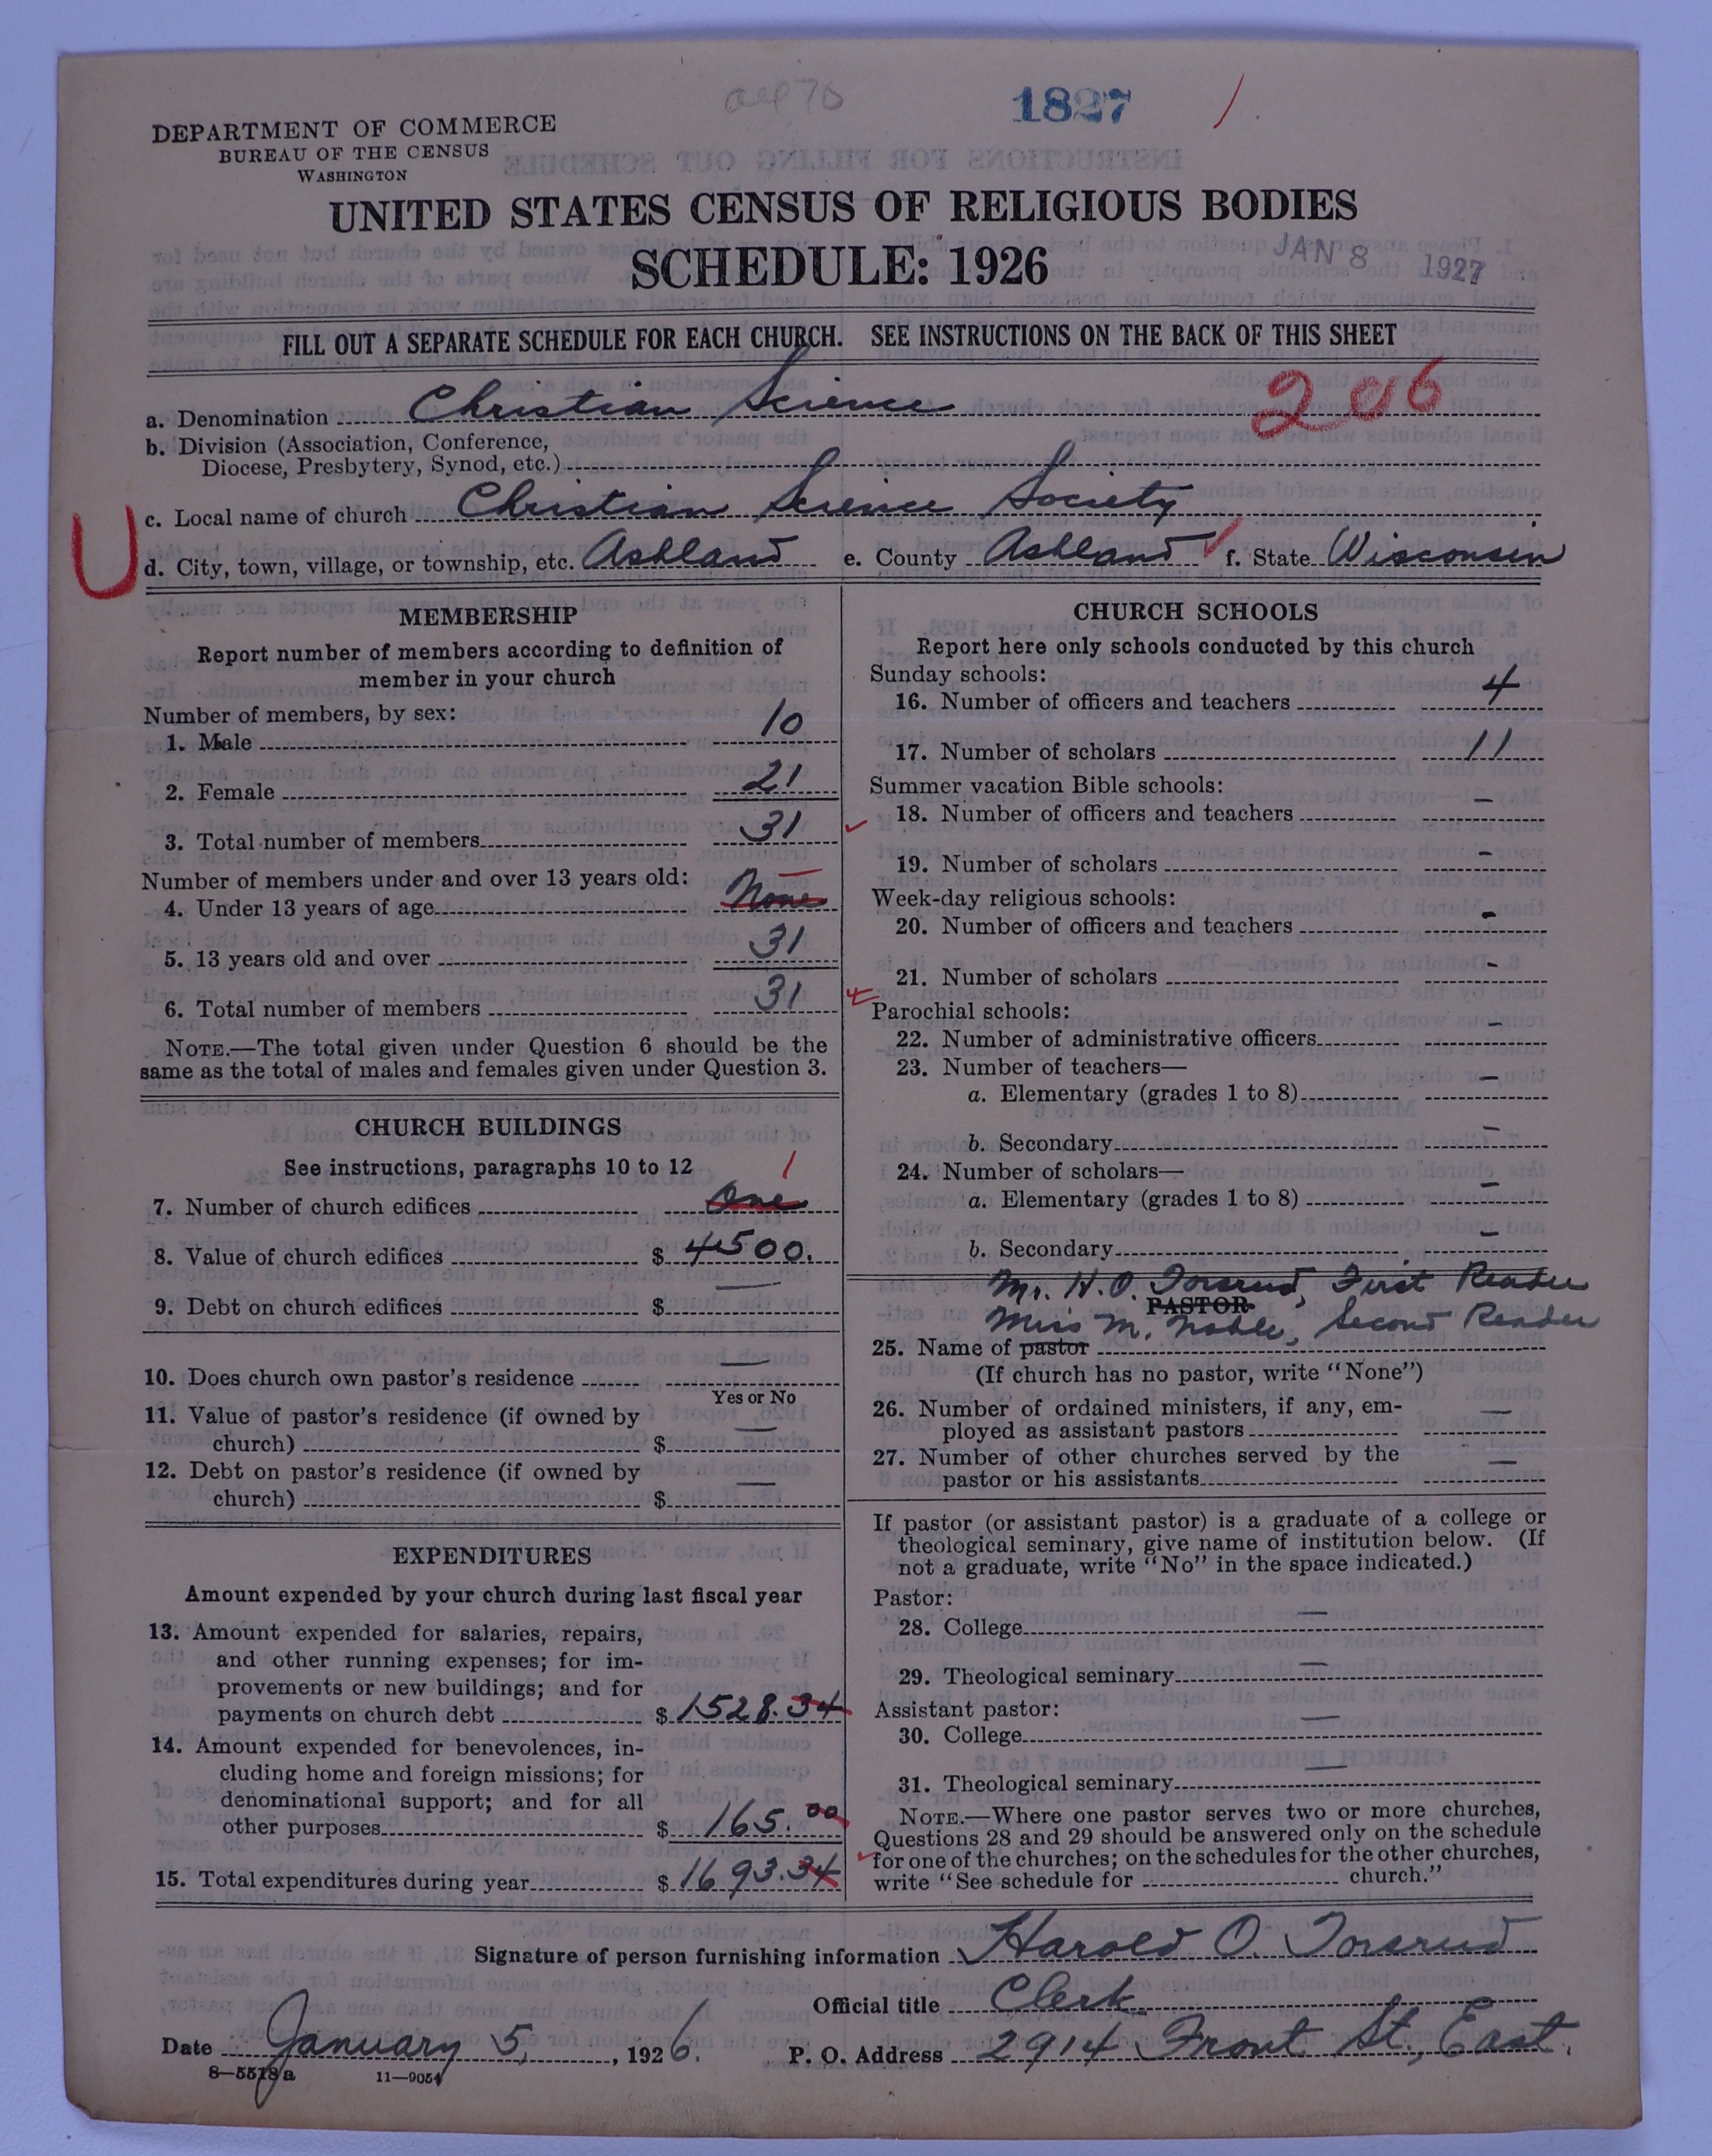 1827 /
DEPARTMENT OF COMMERCE
BUREAU OF THE CENSUS
WASHINGTON
UNITED STATES CENSUS OF RELIGIOUS BODIES
SCHEDULE: 1926
JAN 8 1927
FILL OUT A SEPARATE SCHEDULE FOR EACH CHURCH. SEE INSTRUCTIONS ON THE BACK OF THIS SHEET
206
a. Denomination Christian Science
b. Division (Association, Conference,
Diocese, Presbytery, Synod, etc.)
c. Local name of church Christian Science Society
U
d. City, town, village, or township, etc. Ashland e. County Ashland f. State Wisconsin
MEMBERSHIP
Report number of members according to definition of
member in your church
Number of members, by sex:
1. Male 10
2. Female 21
3. Total number of members 31
Number of members under and over 13 years old:
4. Under 13 years of age None
5. 13 years old and over 31
6. Total number of members 31
NOTE.—The total given under Question 6 should be the
same as the total of males and females given under Question 3.
CHURCH BUILDINGS
See instructions, paragraphs 10 to 12
1
7. Number of church edifices One
8. Value of church edifices $ 4500.
9. Debt on church edifices $ —
10. Does church own pastor's residence —
Yes or No
11. Value of pastor's residence (if owned by
church) $ —
12. Debt on pastor's residence (if owned by
church) $ —
EXPENDITURES
Amount expended by your church during last fiscal year
13. Amount expended for salaries, repairs,
and other running expenses; for im-
provements or new buildings; and for
payments on church debt $ 1528.34
14. Amount expended for benevolences, in-
cluding home and foreign missions; for
denominational support; and for all
other purposes $ 165.00
15. Total expenditures during year $ 1693.34
CHURCH SCHOOLS
Report here only schools conducted by this church
Sunday schools:
16. Number of officers and teachers 4
17. Number of scholars 11
Summer vacation Bible schools:
18. Number of officers and teachers —
19. Number of scholars —
Week-day religious schools:
20. Number of officers and teachers —
21. Number of scholars —
Parochial schools:
22. Number of administrative officers —
23. Number of teachers—
a. Elementary (grades 1 to 8) —
b. Secondary —
24. Number of scholars—
a. Elementary (grades 1 to 8) —
b. Secondary —
Mr. H. O. Torsrud, First Reader
PASTOR
Miss M. Noble, Second Reader
25. Name of pastor
(If church has no pastor, write "None")
26. Number of ordained ministers, if any, em-
ployed as assistant pastors —
27. Number of other churches served by the
pastor or his assistants —
If pastor (or assistant pastor) is a graduate of a college or
theological seminary, give name of institution below. (If
not a graduate, write "No" in the space indicated.)
Pastor:
28. College —
29. Theological seminary —
Assistant pastor:
30. College —
31. Theological seminary —
NOTE.—Where one pastor serves two or more churches,
Questions 28 and 29 should be answered only on the schedule
for one of the churches; on the schedules for the other churches,
write "See schedule for church."
Signature of person furnishing information Harold O. Torsrud
Official title Clerk
Date January 5, 1926. P. O. Address 2914 Front St., East.
8—5518a 11—9054